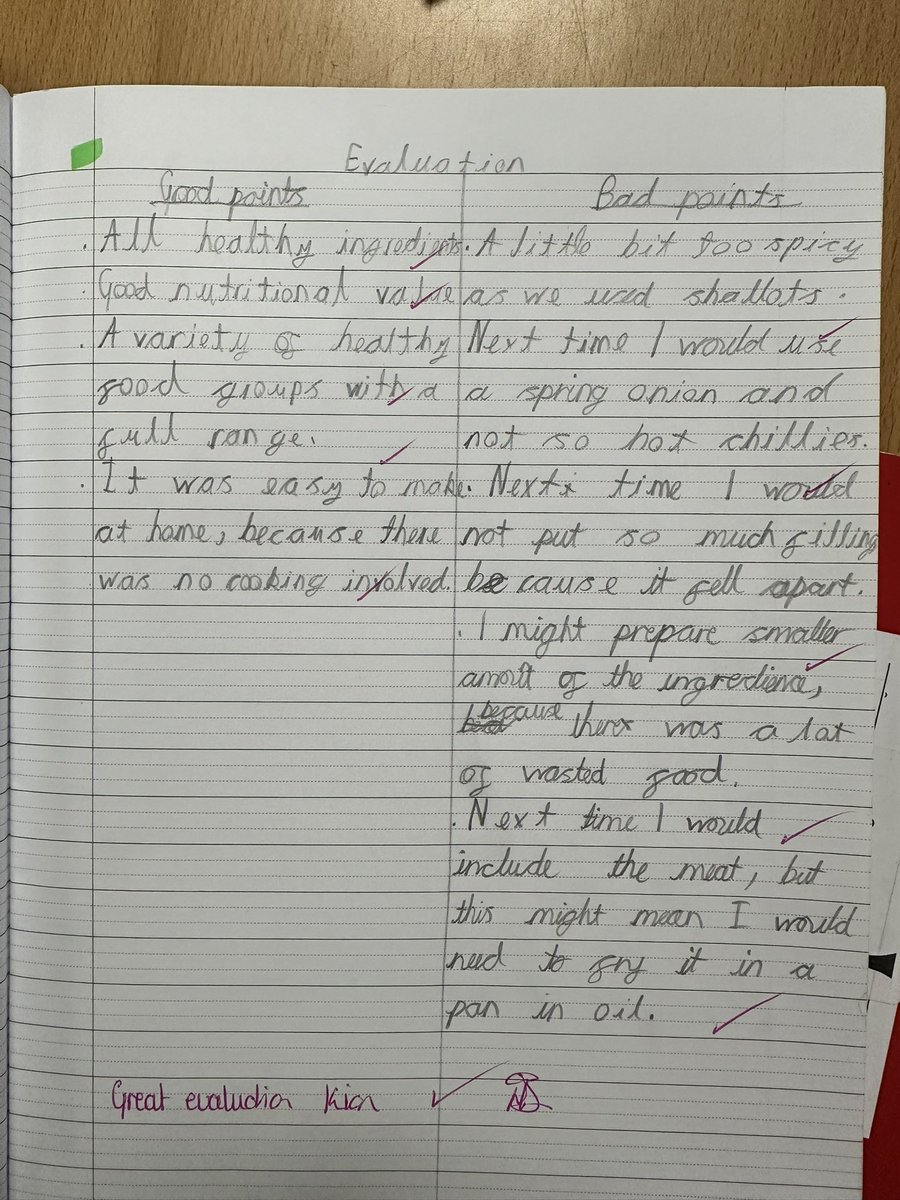 Evaluation
Good points
. All healthy ingredients.
. Good nutritional value
. A variety of healthy
food groups with a
full range.
. It was easy to make
at home, because there
was no cooking involved.
Bad points
. A little bit too spicy
as we used shallots.
Next time I would use
a spring onion and
not so hot chillies.
. Next time I would
not put so much filling
because it fell apart.
. I might prepare smaller
of the
because there was a lot
of wasted food.
. Next time I would
include the meat, but
this might mean I would
need to fry it in a
pan in oil.
Great evaluation Kian